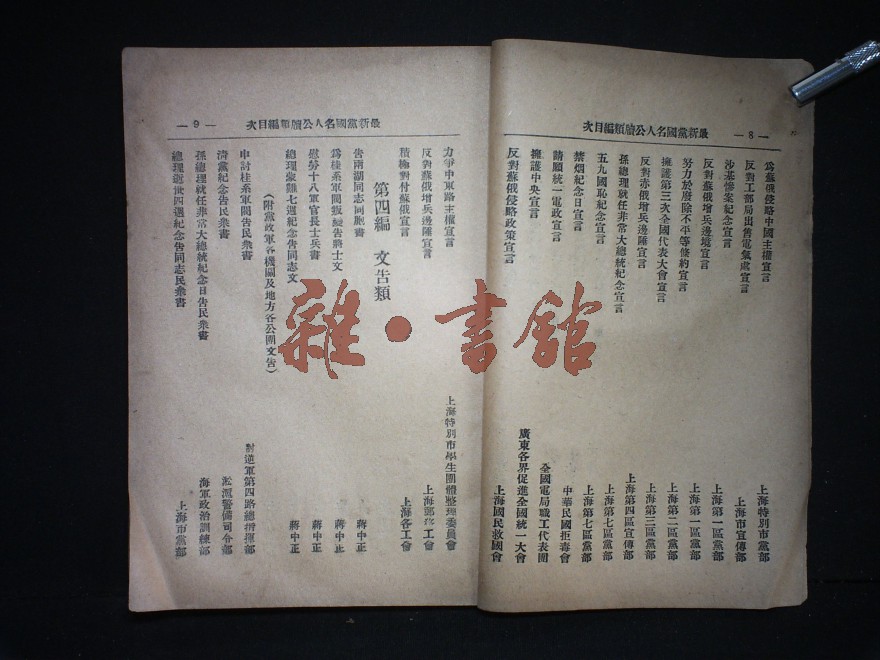 最新黨國名人公牘類編目次
— 8 —
為蘇俄侵略中國主權宣言 上海特別市黨部
反對工部局出售電氣處宣言 上海市宣傳部
沙基慘案紀念宣言 上海第一區黨部
反對蘇俄增兵邊境宣言 上海第一區黨部
努力於廢除不平等條約宣言 上海第二區黨部
擁護第三次全國代表大會宣言 上海第三區黨部
反對赤俄增兵邊陲宣言 上海第四區宣傳部
孫總理就任非常大總統紀念宣言 上海第七區黨部
五九國恥紀念宣言 上海第七區黨部
禁烟紀念日宣言 中華民國拒毒會
請願統一電政宣言 全國電局職工代表團
擁護中央宣言 廣東各界促進全國統一大會
反對蘇俄侵略政策宣言 上海國民救國會
最新黨國名人公牘類編目次
— 9 —
力爭中東路主權宣言 上海特別市學生團體整理委員會
反對蘇俄增兵邊陲宣言 上海郵務工會
積極對付蘇俄宣言 上海各工會
第四編 文告類
告兩湖同志同胞書 蔣中正
為桂系軍閥叛變告將士文 蔣中正
慰勞十八軍官長士兵書 蔣中正
總理蒙難七週紀念告同志文 蔣中正
(附黨政軍各機關及地方各公團文告)
申討桂系軍閥告民衆書 討逆軍第四路總指揮部
清黨紀念告民衆書 淞滬警備司令部
孫總理就任非常大總統紀念日告民衆書 海軍政治訓練部
總理逝世四週紀念告同志民衆書 上海市黨部
雜·書館